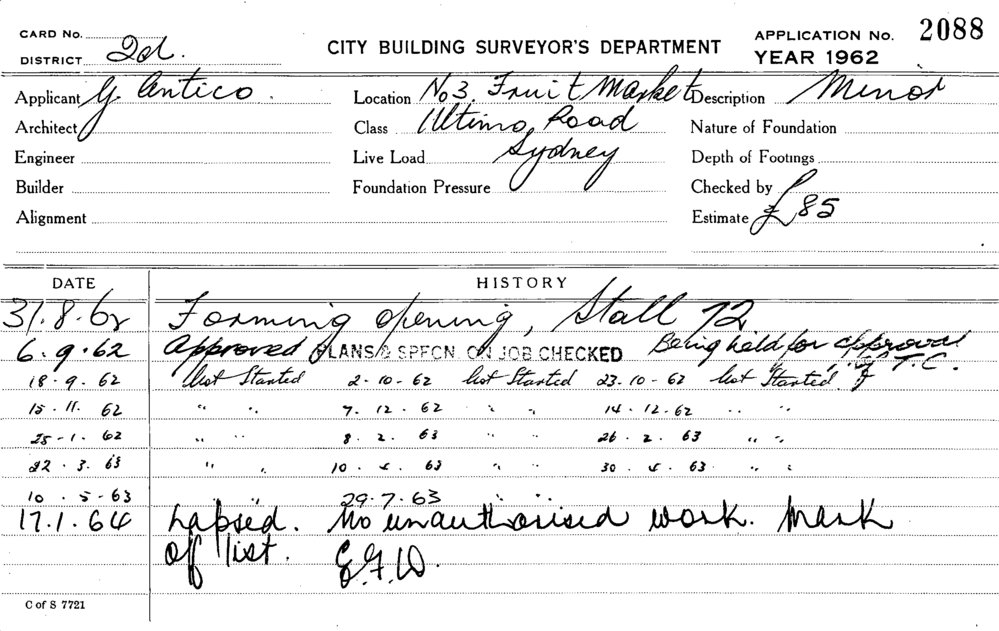 CARD No. CITY BUILDING SURVEYOR'S DEPARTMENT APPLICATION No. 2088
DISTRICT 2d. YEAR 1962
Applicant G. Antico. Location No 3, Fruit Market Description Minor
Architect Class Ultimo, Road Nature of Foundation
Engineer Live Load Sydney Depth of Footings
Builder Foundation Pressure Checked by
Alignment Estimate £85
DATE HISTORY
31.8.62 Forming opening, Stall 72
6.9.62 Approved PLANS & SPFCN. ON JOB CHECKED Being held for approval
by T.C.
18.9.62 Not Started 2-10-62 Not Started 23.10-62 Not Started
15.11.62 " " 7.12.62 " " 14.12.62 " "
25-1.62 " " 8.2.63 " " 26.2.63 " "
22.3.63 " " 10.4.63 " " 30.4.63 " "
10.5-63 " " 29.7.63 " "
17.1.64 Lapsed. No unauthorised work. Mark
off list. E.G.W.
C of S 7721